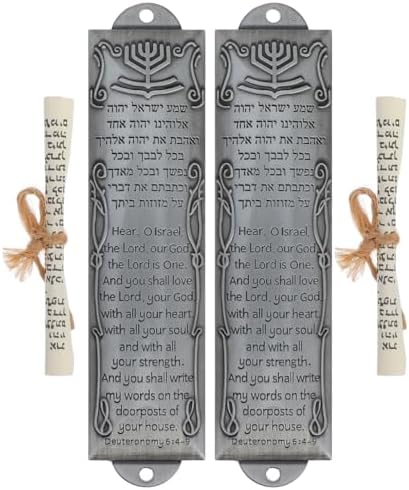 שמע ישראל יהוה
אלוהינו יהוה אחד
ואהבת את יהוה אלהיך
בכל לבבך ובכל
נפשך ובכל מאדך
וכתבתם את דברי
על מזוזות ביתך
Hear, O Israel,
the Lord, our God,
the Lord is One.
And you shall love
the Lord, your God,
with all your heart,
with all your soul
and with all
your strength.
And you shall write
my words on the
doorposts of
your house.
Deuteronomy 6:4-9
שמע ישראל יהוה
אלוהינו יהוה אחד
ואהבת את יהוה אלהיך
בכל לבבך ובכל
נפשך ובכל מאדך
וכתבתם את דברי
על מזוזות ביתך
Hear, O Israel,
the Lord, our God,
the Lord is One.
And you shall love
the Lord, your God,
with all your heart,
with all your soul
and with all
your strength.
And you shall write
my words on the
doorposts of
your house.
Deuteronomy 6:4-9